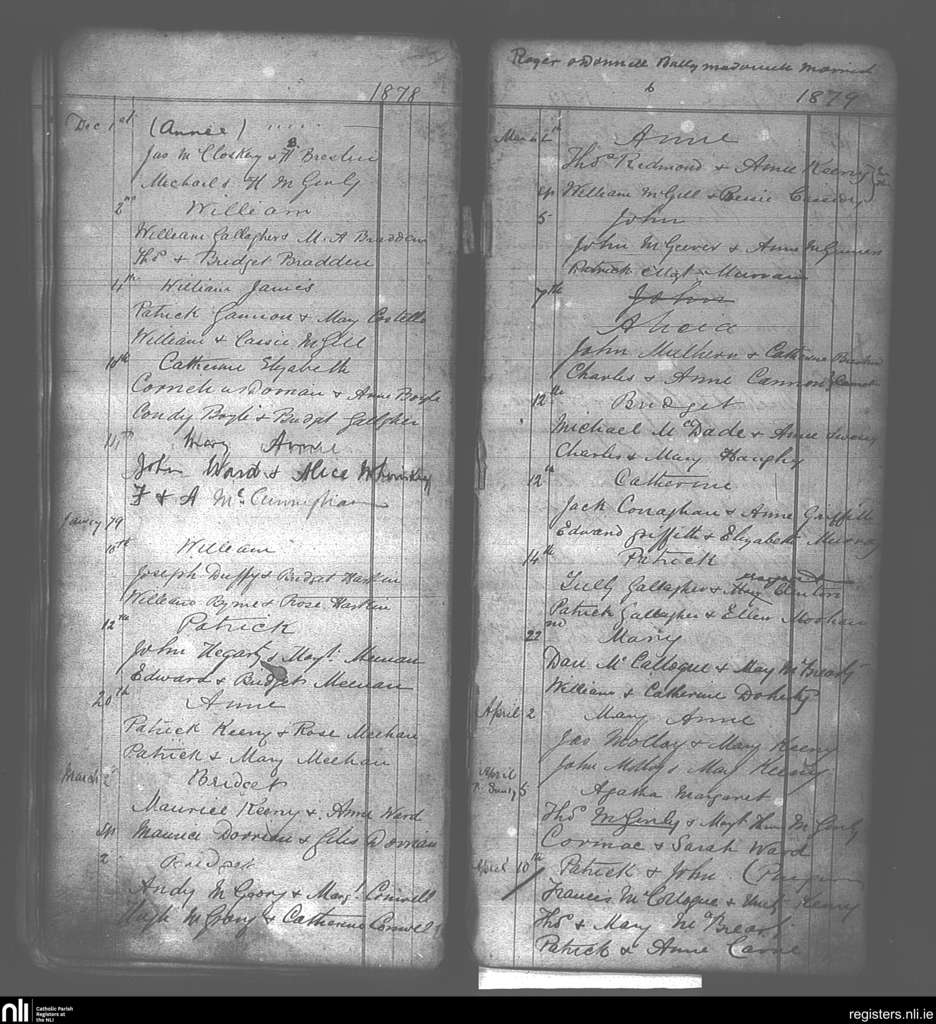 1878
Dec 1st (Annie)
Jas McCloskey & H Breslin
Michael & H McGinly
2nd William
William Gallagher & M. A Bradden
Thos & Bridget Bradden
4th William James
Patrick Gannon & Mary Costello
William & Cassie McGill
10th Catherine Elyabeth
Cornel & Anne Boyle
Condy Boyle & Budget Gallagher
Mary Anne
John Ward & Alice
F & A McCunningham
79
10th William
Joseph Duffy & Bridget Haskin
William Byrne & Rose Haskin
12th Patrick
John Hegarty & Margt Meenan
Edward & Bridget Meenan
20th Anne
Patrick Keeny & Rose Meehan
Patrick & Mary Meehan
March 2 Bridget
Maurice Keeny & Anne Ward
Sp Maurice Dorrian & Dorrian
2 Bridget
Andy McGrory & Margt Conwell
Hugh McGrory & Catherine Conwell
Roger O'Donnell married
1879
March Anne
Thos Redmond & Anne Keeny
Sp William McGill & Bessie Cassidy
5 John
John McGeever & Anne
Patrick
7th John
Alicia
John Mulhern & Catherine
Charles & Anne Cannon
12th Bridget
Michael McDade & Anne
Charles & Mary Haughy
12th Catherine
Jack Conaghan & Anne Griffith
Edward Griffith & Elyabeth Murray
14th Patrick
Margaret
Tully Gallagher & Clinton
Patrick Gallagher & Ellen Moohan
22nd Mary
Dan McCallogue & Mary McBrearty
William & Catherine Doherty
April 2 Mary Anne
Jas Molloy & Mary Keeny
John Molloy & Mary Keeny
April
5 Agatha Margaret
Thos McGinly & Margt McGinly
Cormac & Sarah Ward
April 10th Patrick & John
Francis McCollogue & Keeny
Thos & Mary McBrearty
Patrick & Anne
nli
Catholic Parish
Registers at
the NLI
registers.nli.ie